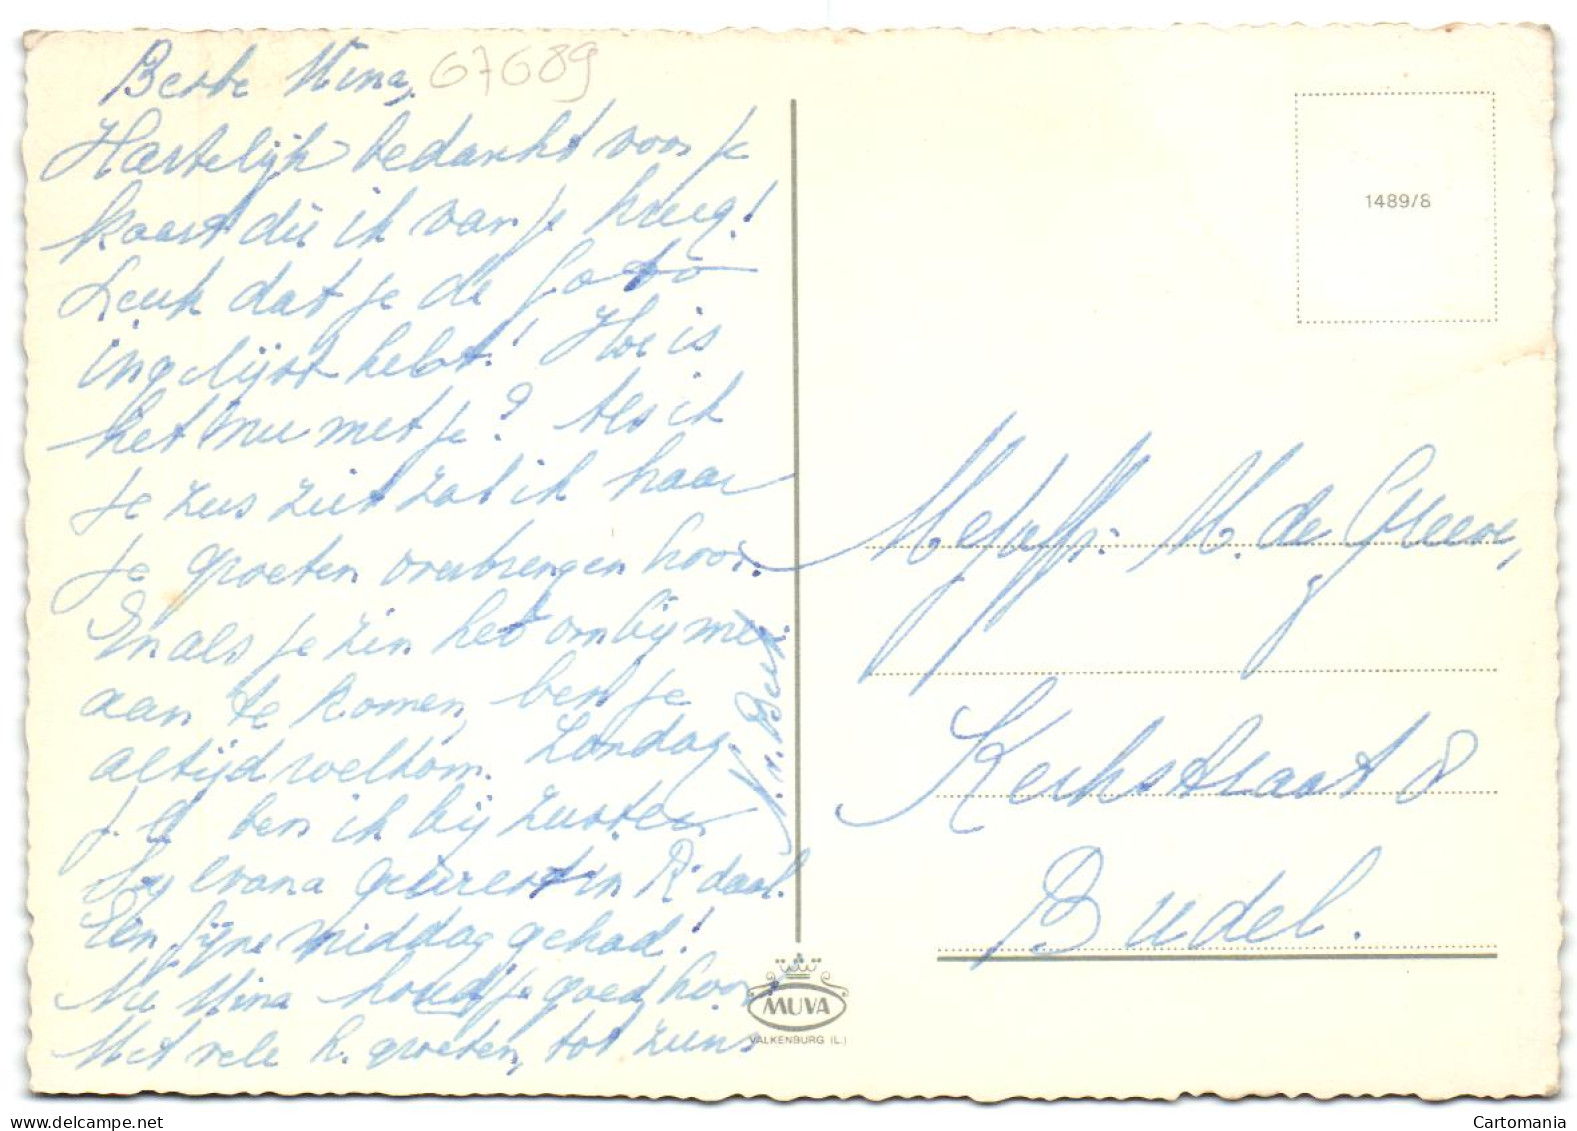 Beste Mina, 67689
Hartelijk bedankt voor je
kaart die ik van je kreeg!
Leuk dat je de foto
ingelijst hebt! Hoe is
het nu met je? Als ik
je zus ziet zal ik haar
je groeten overbrengen hoor.
En als je zin het om bij mer
aan te komen, ben je
altijd welkom. Zondag
j.l. ben ik bij zuster
geweest in R'daal.
Een fijne middag gehad!
Nu Mina houd je goed hoor!
Met vele h. groeten, tot ziens
1489/8
Mejuff. M. de Greeve,
Kerkstraat 8
Budel.
MUVA
VALKENBURG (L.)
Cartomania